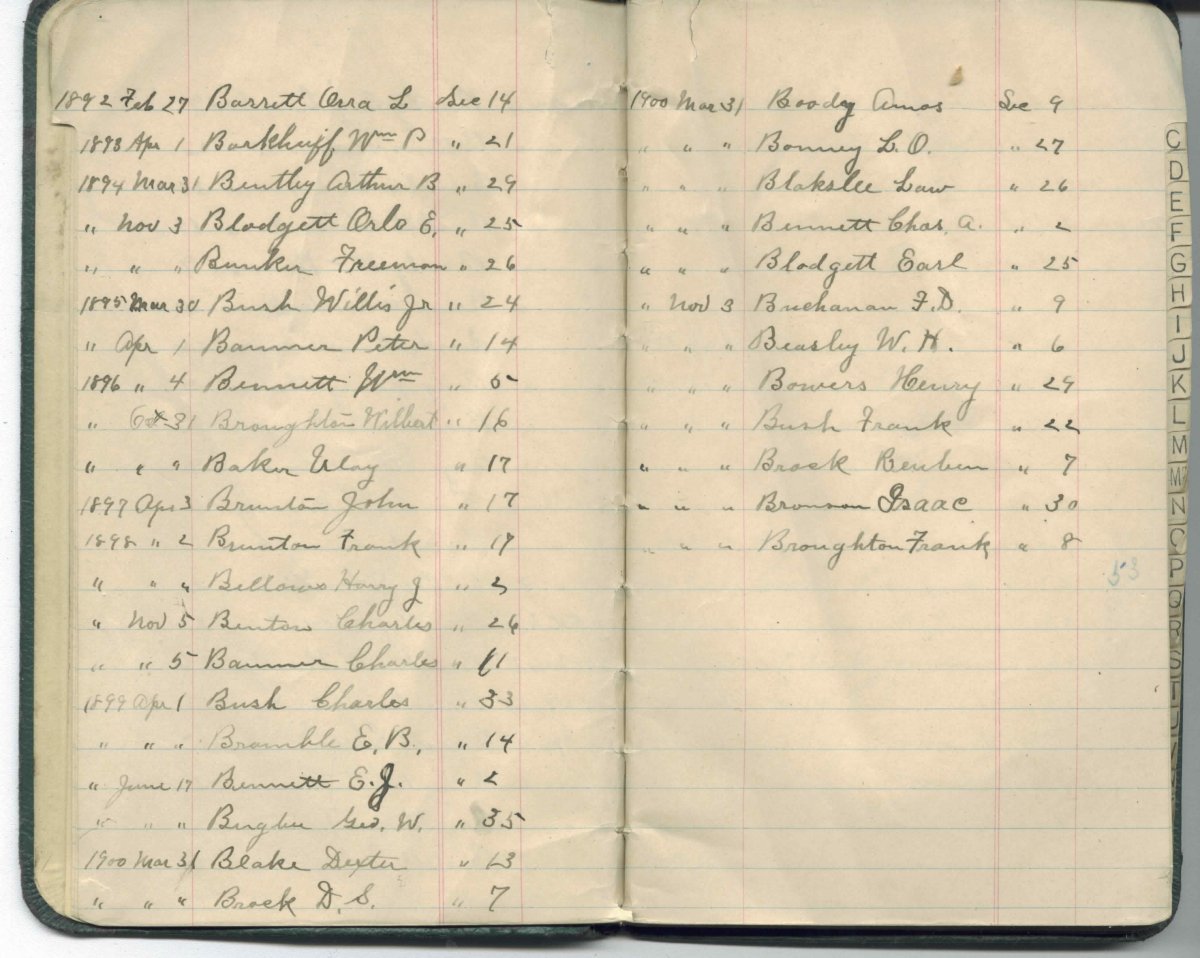 1892 Feb 27 Barrett Orra L Sec 14
1893 Apr 1 Barkhuff Wm P " 21
1894 Mar 31 Bentley Arthur B " 29
" Nov 3 Blodgett Orlo E, " 25
" " " Bunker Freeman " 26
1895 Mar 30 Bush Willis Jr " 24
" Apr 1 Banmer Peter " 14
1896 " 4 Bennett Wm " 5
" Oct 31 Broughton Wilbert " 16
" " " Baker " 17
1897 Apr 3 Brunton John " 17
1898 " 2 Brunton Frank " 17
" " " Bellows Harry J " 2
" Nov 5 Benton Charles " 26
" " 5 Banmer Charles " 11
1899 Apr 1 Bush Charles " 33
" " " Bramble E. B. " 14
" June 17 Bennett E. J. " 2
" " " Geo. W. " 35
1900 Mar 31 Blake Dexter " 13
" " " Brock D. S. " 7
1900 Mar 31 Boody Amos Sec 9
" " " Bonney L. O. " 27
" " " Blakslee Law " 26
" " " Bennett Chas. A. " 2
" " " Blodgett Earl " 25
" Nov 3 Buchanan F. D. " 9
" " " Beasley W. H. " 6
" " " Bowers Henry " 29
" " " Bush Frank " 22
" " " Brock Reuben " 7
" " " Bronson Isaac " 30
" " " Broughton Frank " 8
53
C
D
E
F
G
H
I
J
K
L
M
Mc
N
O
P
Q
R
S
T
U
V